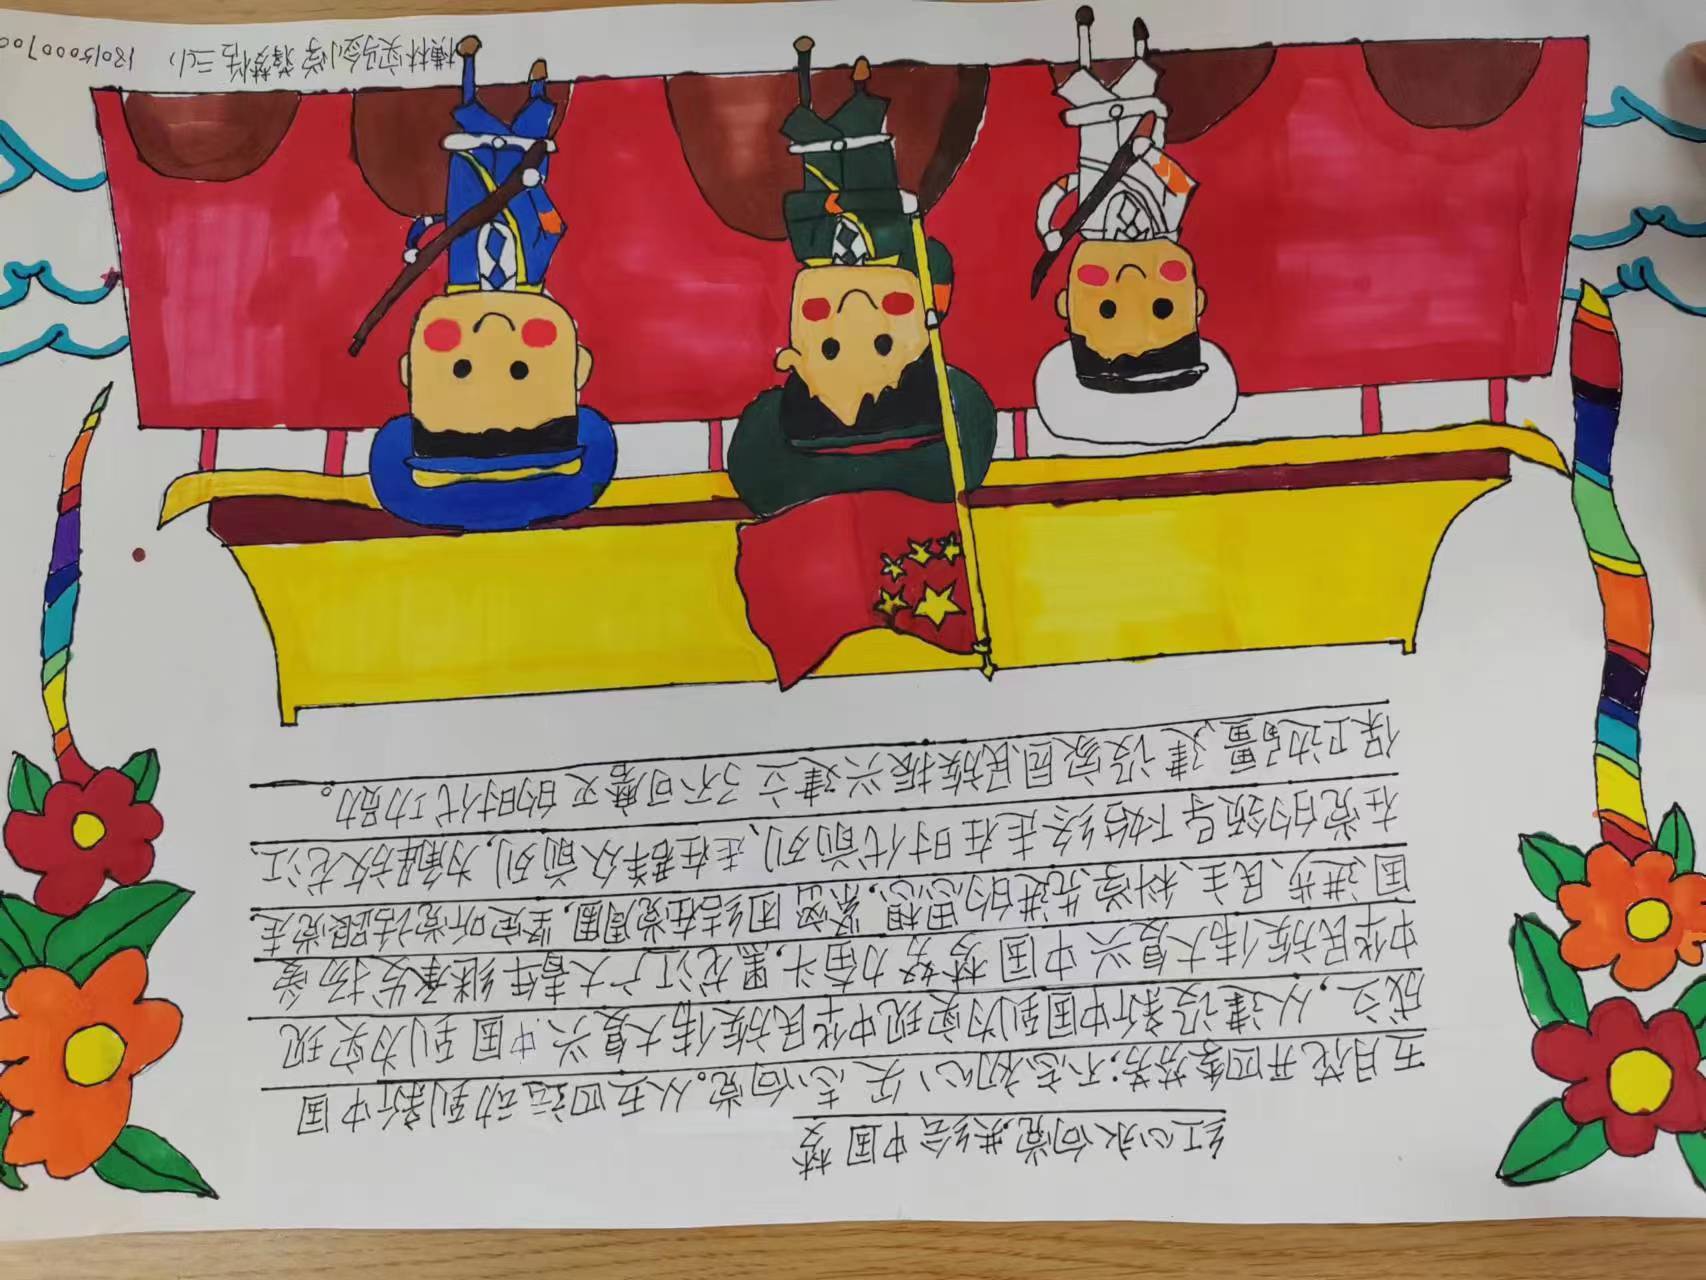 红心永向党,共绘中国梦
五月花开四季芬芳;不忘初心 矢志向党。从五四运动到新中国
成立,从建设新中国到为实现中华民族伟大复兴中国到为实现
中华民族伟大复兴中国梦努力奋斗,黑龙江广大青年继承发扬爱
国进步、民主、科学先进的思想,紧密团结在党周围,坚定听党话跟党走
在党的领导下始终走在时代前列、走在群众前列,为解放龙江
保卫边疆、建设家园民族振兴建立了不可磨灭的时代功勋。
横林实验小学 三(1)